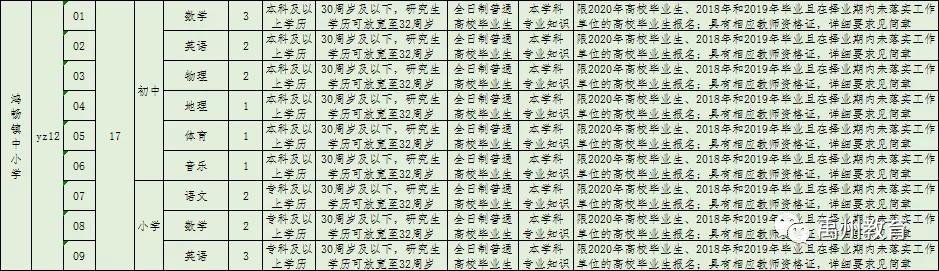 鸿畅镇中小学
yz12
17
初中
小学
01 数学 3 本科及以上学历 30周岁及以下，研究生学历可放宽至32周岁 全日制普通高校毕业生 本学科专业知识 限2020年高校毕业生、2018年和2019年毕业且在择业期内未落实工作单位的高校毕业生报名；具有相应教师资格证，详细要求见简章
02 英语 2 本科及以上学历 30周岁及以下，研究生学历可放宽至32周岁 全日制普通高校毕业生 本学科专业知识 限2020年高校毕业生、2018年和2019年毕业且在择业期内未落实工作单位的高校毕业生报名；具有相应教师资格证，详细要求见简章
03 物理 2 本科及以上学历 30周岁及以下，研究生学历可放宽至32周岁 全日制普通高校毕业生 本学科专业知识 限2020年高校毕业生、2018年和2019年毕业且在择业期内未落实工作单位的高校毕业生报名；具有相应教师资格证，详细要求见简章
04 地理 1 本科及以上学历 30周岁及以下，研究生学历可放宽至32周岁 全日制普通高校毕业生 本学科专业知识 限2020年高校毕业生、2018年和2019年毕业且在择业期内未落实工作单位的高校毕业生报名；具有相应教师资格证，详细要求见简章
05 体育 1 本科及以上学历 30周岁及以下，研究生学历可放宽至32周岁 全日制普通高校毕业生 本学科专业知识 限2020年高校毕业生、2018年和2019年毕业且在择业期内未落实工作单位的高校毕业生报名；具有相应教师资格证，详细要求见简章
06 音乐 1 本科及以上学历 30周岁及以下，研究生学历可放宽至32周岁 全日制普通高校毕业生 本学科专业知识 限2020年高校毕业生、2018年和2019年毕业且在择业期内未落实工作单位的高校毕业生报名；具有相应教师资格证，详细要求见简章
07 语文 2 专科及以上学历 30周岁及以下，研究生学历可放宽至32周岁 全日制普通高校毕业生 本学科专业知识 限2020年高校毕业生、2018年和2019年毕业且在择业期内未落实工作单位的高校毕业生报名；具有相应教师资格证，详细要求见简章
08 数学 2 专科及以上学历 30周岁及以下，研究生学历可放宽至32周岁 全日制普通高校毕业生 本学科专业知识 限2020年高校毕业生、2018年和2019年毕业且在择业期内未落实工作单位的高校毕业生报名；具有相应教师资格证，详细要求见简章
09 英语 3 专科及以上学历 30周岁及以下，研究生学历可放宽至32周岁 全日制普通高校毕业生 本学科专业知识 限2020年高校毕业生、2018年和2019年毕业且在择业期内未落实工作单位的高校毕业生报名；具有相应教师资格证，详细要求见简章
禹州教育